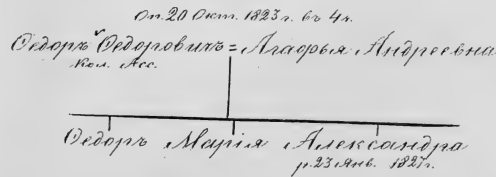 Оп. 20 Окт. 1823 г. въ 4 г.
Ѳедоръ Ѳедоровичъ = Агафья Андреевна
Кол. Асс.
Ѳедоръ Марія Александра
р. 23 Янв. 1827 г.